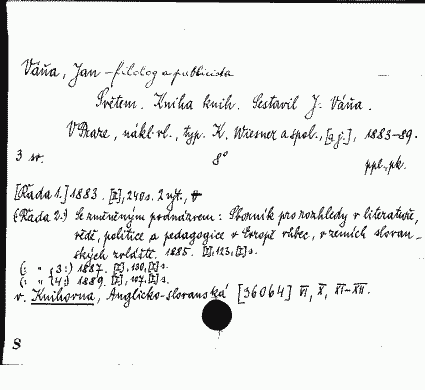 Váňa, Jan – filolog a publicista
Světem. Kniha knih. Sestavil J. Váňa.
V Praze, nákl. vl., typ. K. Wiesner a spol., [a j.], 1883–89.
3 sv. 8° ppl., pk.
[Řada 1.] 1883. [2], 240 s. 2 výt.,
(Řada 2.) Se změněným podnázvem: Sborník pro rozhledy v literatuře,
vědě, politice a pedagogice v Evropě vůbec, v zemích slovan-
ských zvláště. 1885. [2], 123, [2] s.
(: " (3:) 1887. [2], 130, [2] s.
(: " (4:) 1889. [2], 107, [2] s.
v. Knihovna, Anglicko-slovanská [36064] VI, X, XI–XII.
8